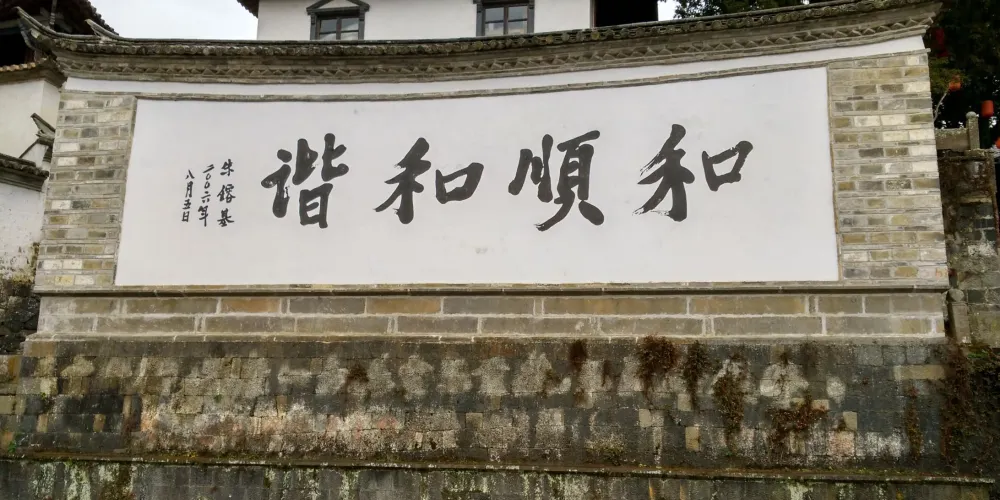 和順和谐
朱镕基
二〇〇六年
八月五日